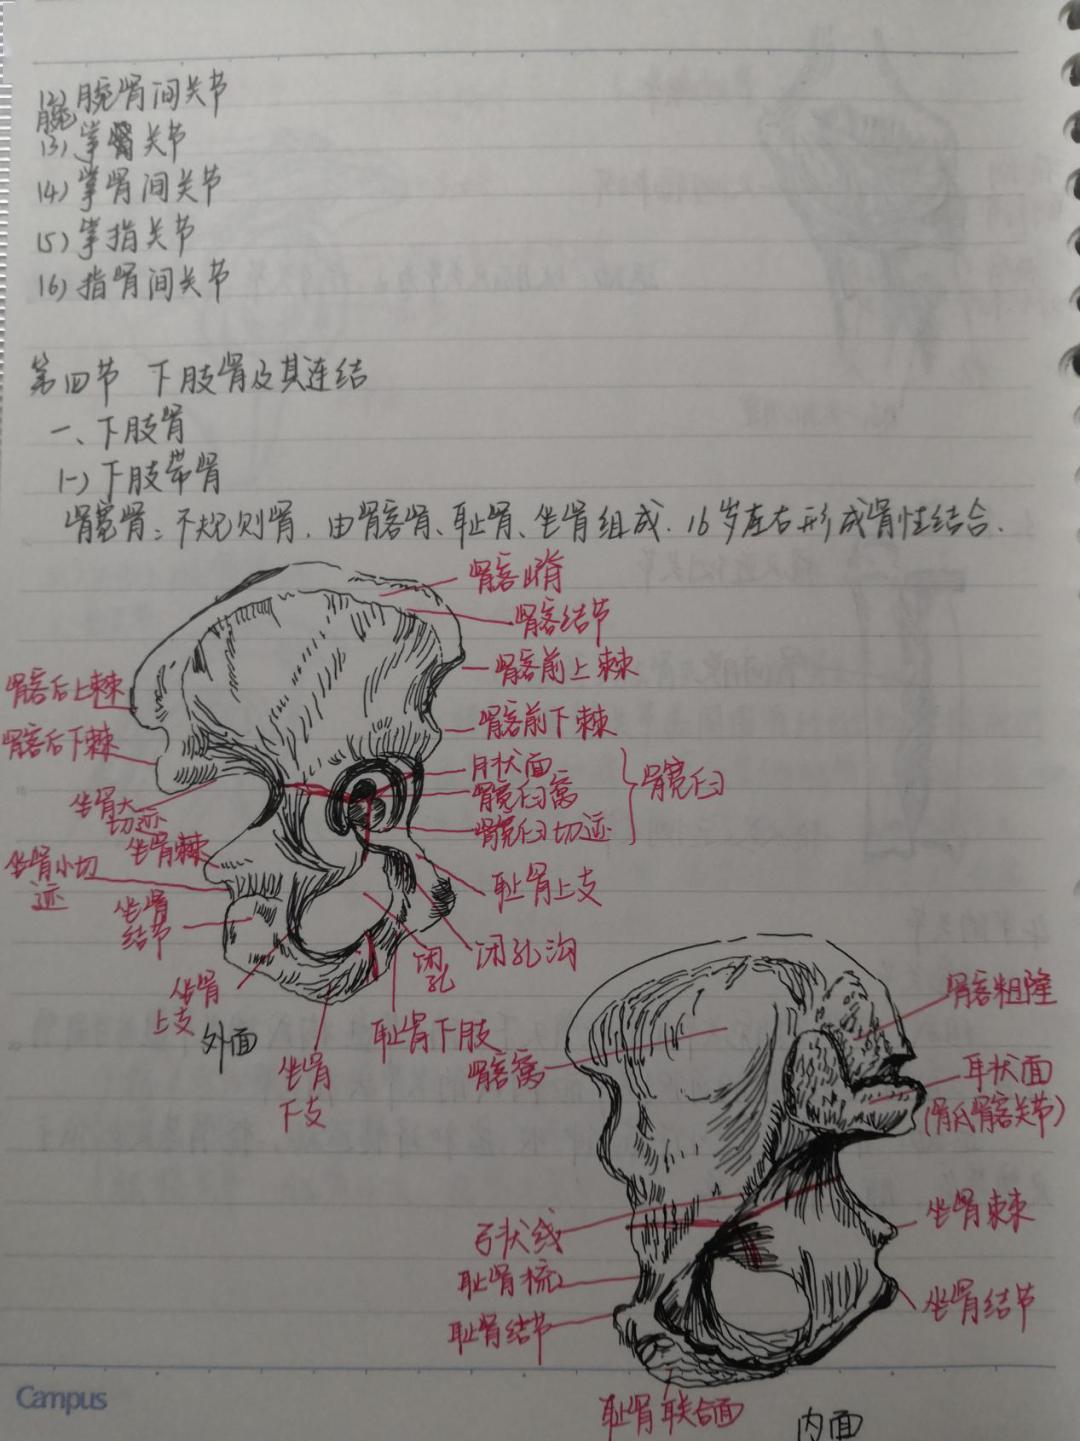 (2) 腕骨间关节
(3) 腕掌关节
(4) 掌骨间关节
(5) 掌指关节
(6) 指骨间关节
第四节 下肢骨及其连结
一、下肢骨
(一) 下肢带骨
髋骨：不规则骨，由髂骨、耻骨、坐骨组成，16岁左右形成骨性结合.
髂嵴
髂结节
髂前上棘
髂后上棘
髂前下棘
髂后下棘
月状面
髋臼窝
髋臼切迹
髋臼
坐骨大
切迹
坐骨棘
坐骨小切
迹
耻骨上支
坐骨
结节
闭孔沟
闭
孔
坐骨
上支
外面
耻骨下肢
坐骨
下支
髂窝
髂粗隆
耳状面
(骶髂关节)
坐骨棘
弓状线
耻骨梳
坐骨结节
耻骨结节
耻骨联合面
内面
Campus